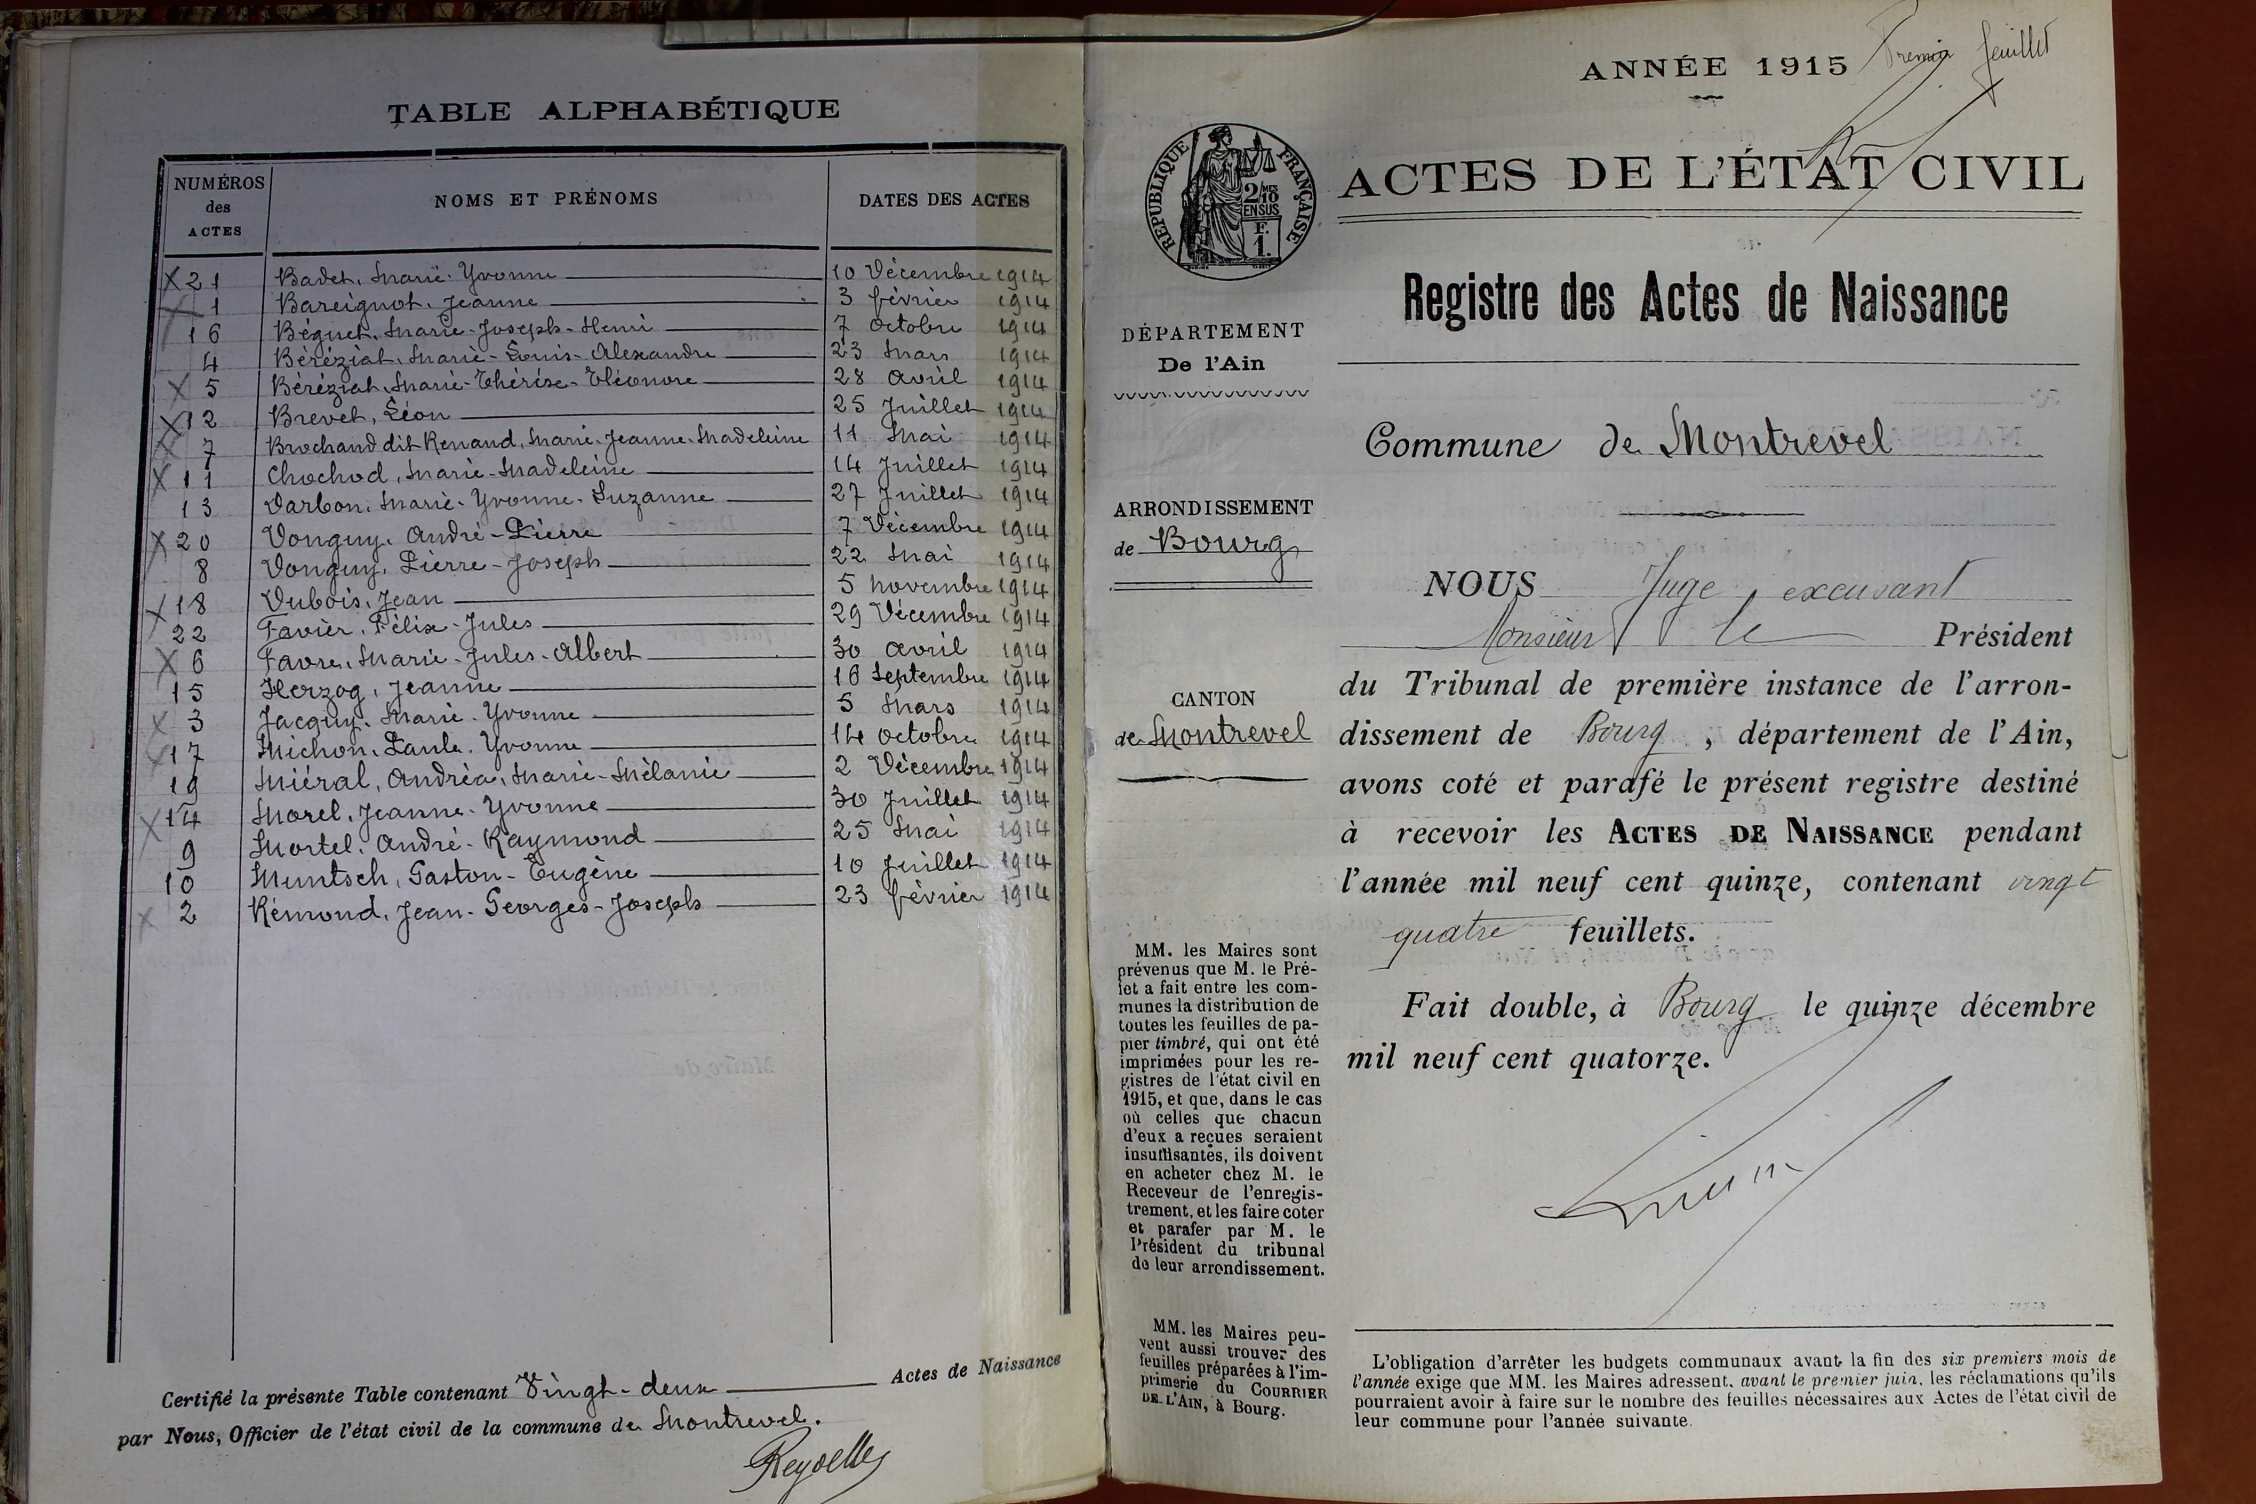 TABLE ALPHABÉTIQUE
NUMÉROS des ACTES NOMS ET PRÉNOMS DATES DES ACTES
X 21 Badet, Marie-Yvonne 10 Décembre 1914
X 1 Bareignot, Jeanne 3 février 1914
16 Béguet, Marie-Joseph-Henri 7 octobre 1914
4 Béréziat, Marie-Louis-Alexandre 23 Mars 1914
X 5 Béréziat, Marie-Thérèse-Eléonore 28 avril 1914
X 12 Brevet, Léon 25 Juillet 1914
X 7 Brochand dit Renand, Marie-Jeanne-Madeleine 11 Mai 1914
X 11 Chochod, Marie-Madeleine 14 Juillet 1914
13 Darbon, Marie-Yvonne-Suzanne 27 Juillet 1914
X 20 Donguy, André-Pierre 7 Décembre 1914
8 Donguy, Pierre-Joseph 22 Mai 1914
X 18 Dubois, Jean 5 novembre 1914
22 Favier, Félix-Jules 29 Décembre 1914
X 6 Favre, Marie-Jules-Albert 30 avril 1914
15 Herzog, Jeanne 16 Septembre 1914
X 3 Jacquy, Marie-Yvonne 5 Mars 1914
X 17 Michon, Paule-Yvonne 14 octobre 1914
19 Miéral, Andréa, Marie-Mélanie 2 Décembre 1914
X 14 Morel, Jeanne-Yvonne 30 Juillet 1914
9 Mortel, André-Raymond 25 Mai 1914
10 Muntsch, Gaston-Eugène 10 Juillet 1914
X 2 Rémond, Jean-Georges-Joseph 23 février 1914
Certifié la présente Table contenant Vingt-deux Actes de Naissance
par Nous, Officier de l'état civil de la commune de Montrevel.
ANNÉE 1915 Premier feuillet
RÉPUBLIQUE FRANÇAISE
2/10 MES
EN SUS
F.
1.
ACTES DE L'ÉTAT CIVIL
Registre des Actes de Naissance
DÉPARTEMENT
De l'Ain
Commune de Montrevel
ARRONDISSEMENT
de Bourg
CANTON
de Montrevel
NOUS Juge excusant
Monsieur le Président
du Tribunal de première instance de l'arron-
dissement de Bourg, département de l'Ain,
avons coté et parafé le présent registre destiné
à recevoir les ACTES DE NAISSANCE pendant
l'année mil neuf cent quinze, contenant vingt
quatre feuillets.
Fait double, à Bourg le quinze décembre
mil neuf cent quatorze.
MM. les Maires sont
prévenus que M. le Pré-
fet a fait entre les com-
munes la distribution de
toutes les feuilles de pa-
pier timbré, qui ont été
imprimées pour les re-
gistres de l'état civil en
1915, et que, dans le cas
où celles que chacun
d'eux a reçues seraient
insuffisantes, ils doivent
en acheter chez M. le
Receveur de l'enregis-
trement, et les faire coter
et parafer par M. le
Président du tribunal
de leur arrondissement.
MM. les Maires peu-
vent aussi trouver des
feuilles préparées à l'im-
primerie du COURRIER
DE L'AIN, à Bourg.
L'obligation d'arrêter les budgets communaux avant la fin des six premiers mois de
l'année exige que MM. les Maires adressent, avant le premier juin, les réclamations qu'ils
pourraient avoir à faire sur le nombre des feuilles nécessaires aux Actes de l'état civil de
leur commune pour l'année suivante.